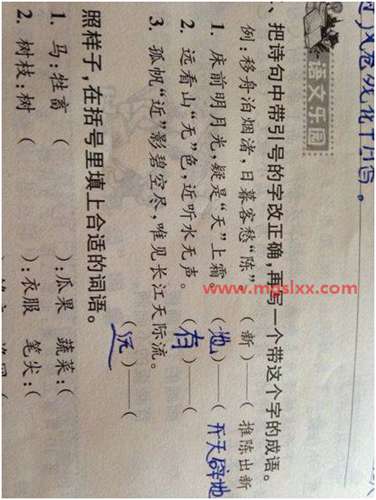 语文乐园
、把诗句中带引号的字改正确,再写一个带这个字的成语。
例:移舟泊烟渚,日暮客愁“陈” (新)——( 推陈出新
1. 床前明月光,疑是“天”上霜 (地)——( 开天辟地
2. 远看山“无”色,近听水无声。 (有)——(
3. 孤帆“近”影碧空尽,唯见长江天际流。 (远)——(
照样子,在括号里填上合适的词语。
1. 马:牲畜 ( ):瓜果 蔬菜:(
2. 树枝:树 ( ):衣服 笔尖:(
www.mpslxx.com